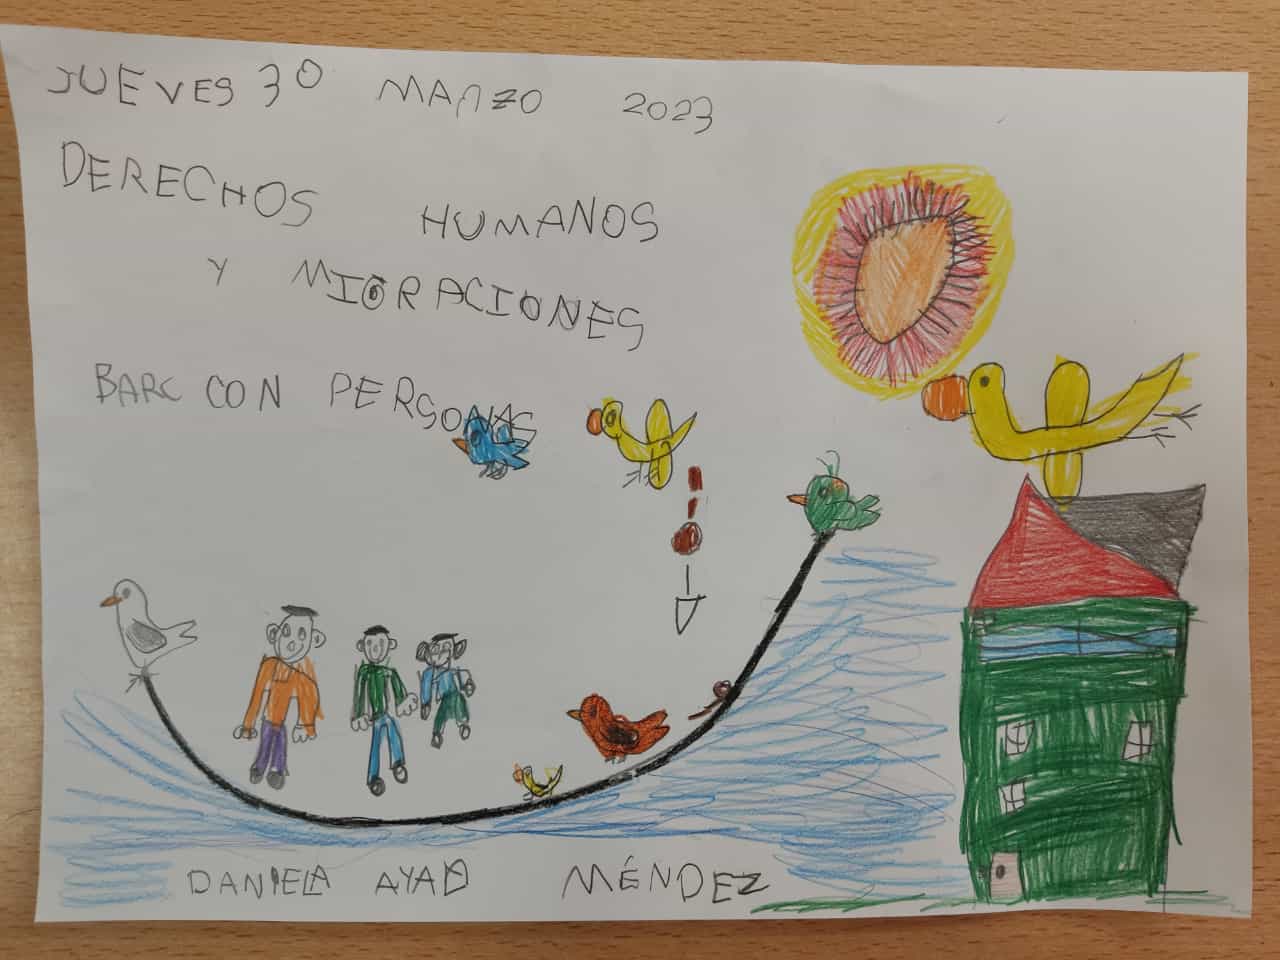 JUEVES 30 MARZO 2023
DERECHOS HUMANOS
Y MIGRACIONES
BARC CON PERSONAS
DANIELA AYAD MÉNDEZ